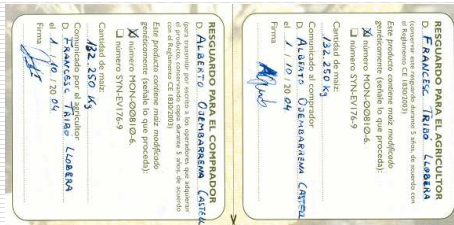 RESGUARDO PARA EL AGRICULTOR
D. FRANCESC TRIBÓ LLOBERA
(conservar este resguardo durante 5 años, de acuerdo con
el Reglamento CE 1830/2003)
Este producto contiene maíz modificado
genéticamente (señale lo que proceda):
X número MON-ØØ81Ø-6.
número SYN-EV176-9
Cantidad de maíz:
132.250 Kg
Comunicado al comprador
D. ALBERTO OJEMBARRENA CASTELL
el 1 / 10 / 20 04
Firma
RESGUARDO PARA EL COMPRADOR
D. ALBERTO OJEMBARRENA CASTELL
(para transmitir por escrito a los operadores que adquieran
el producto, conservando copia durante 5 años, de acuerdo
con el Reglamento CE 1830/2003)
Este producto contiene maíz modificado
genéticamente (señale lo que proceda):
X número MON-ØØ81Ø-6.
número SYN-EV176-9
Cantidad de maíz:
132.250 Kg
Comunicado por el agricultor
D. FRANCESC TRIBÓ LLOBERA
el 1 / 10 / 20 04
Firma